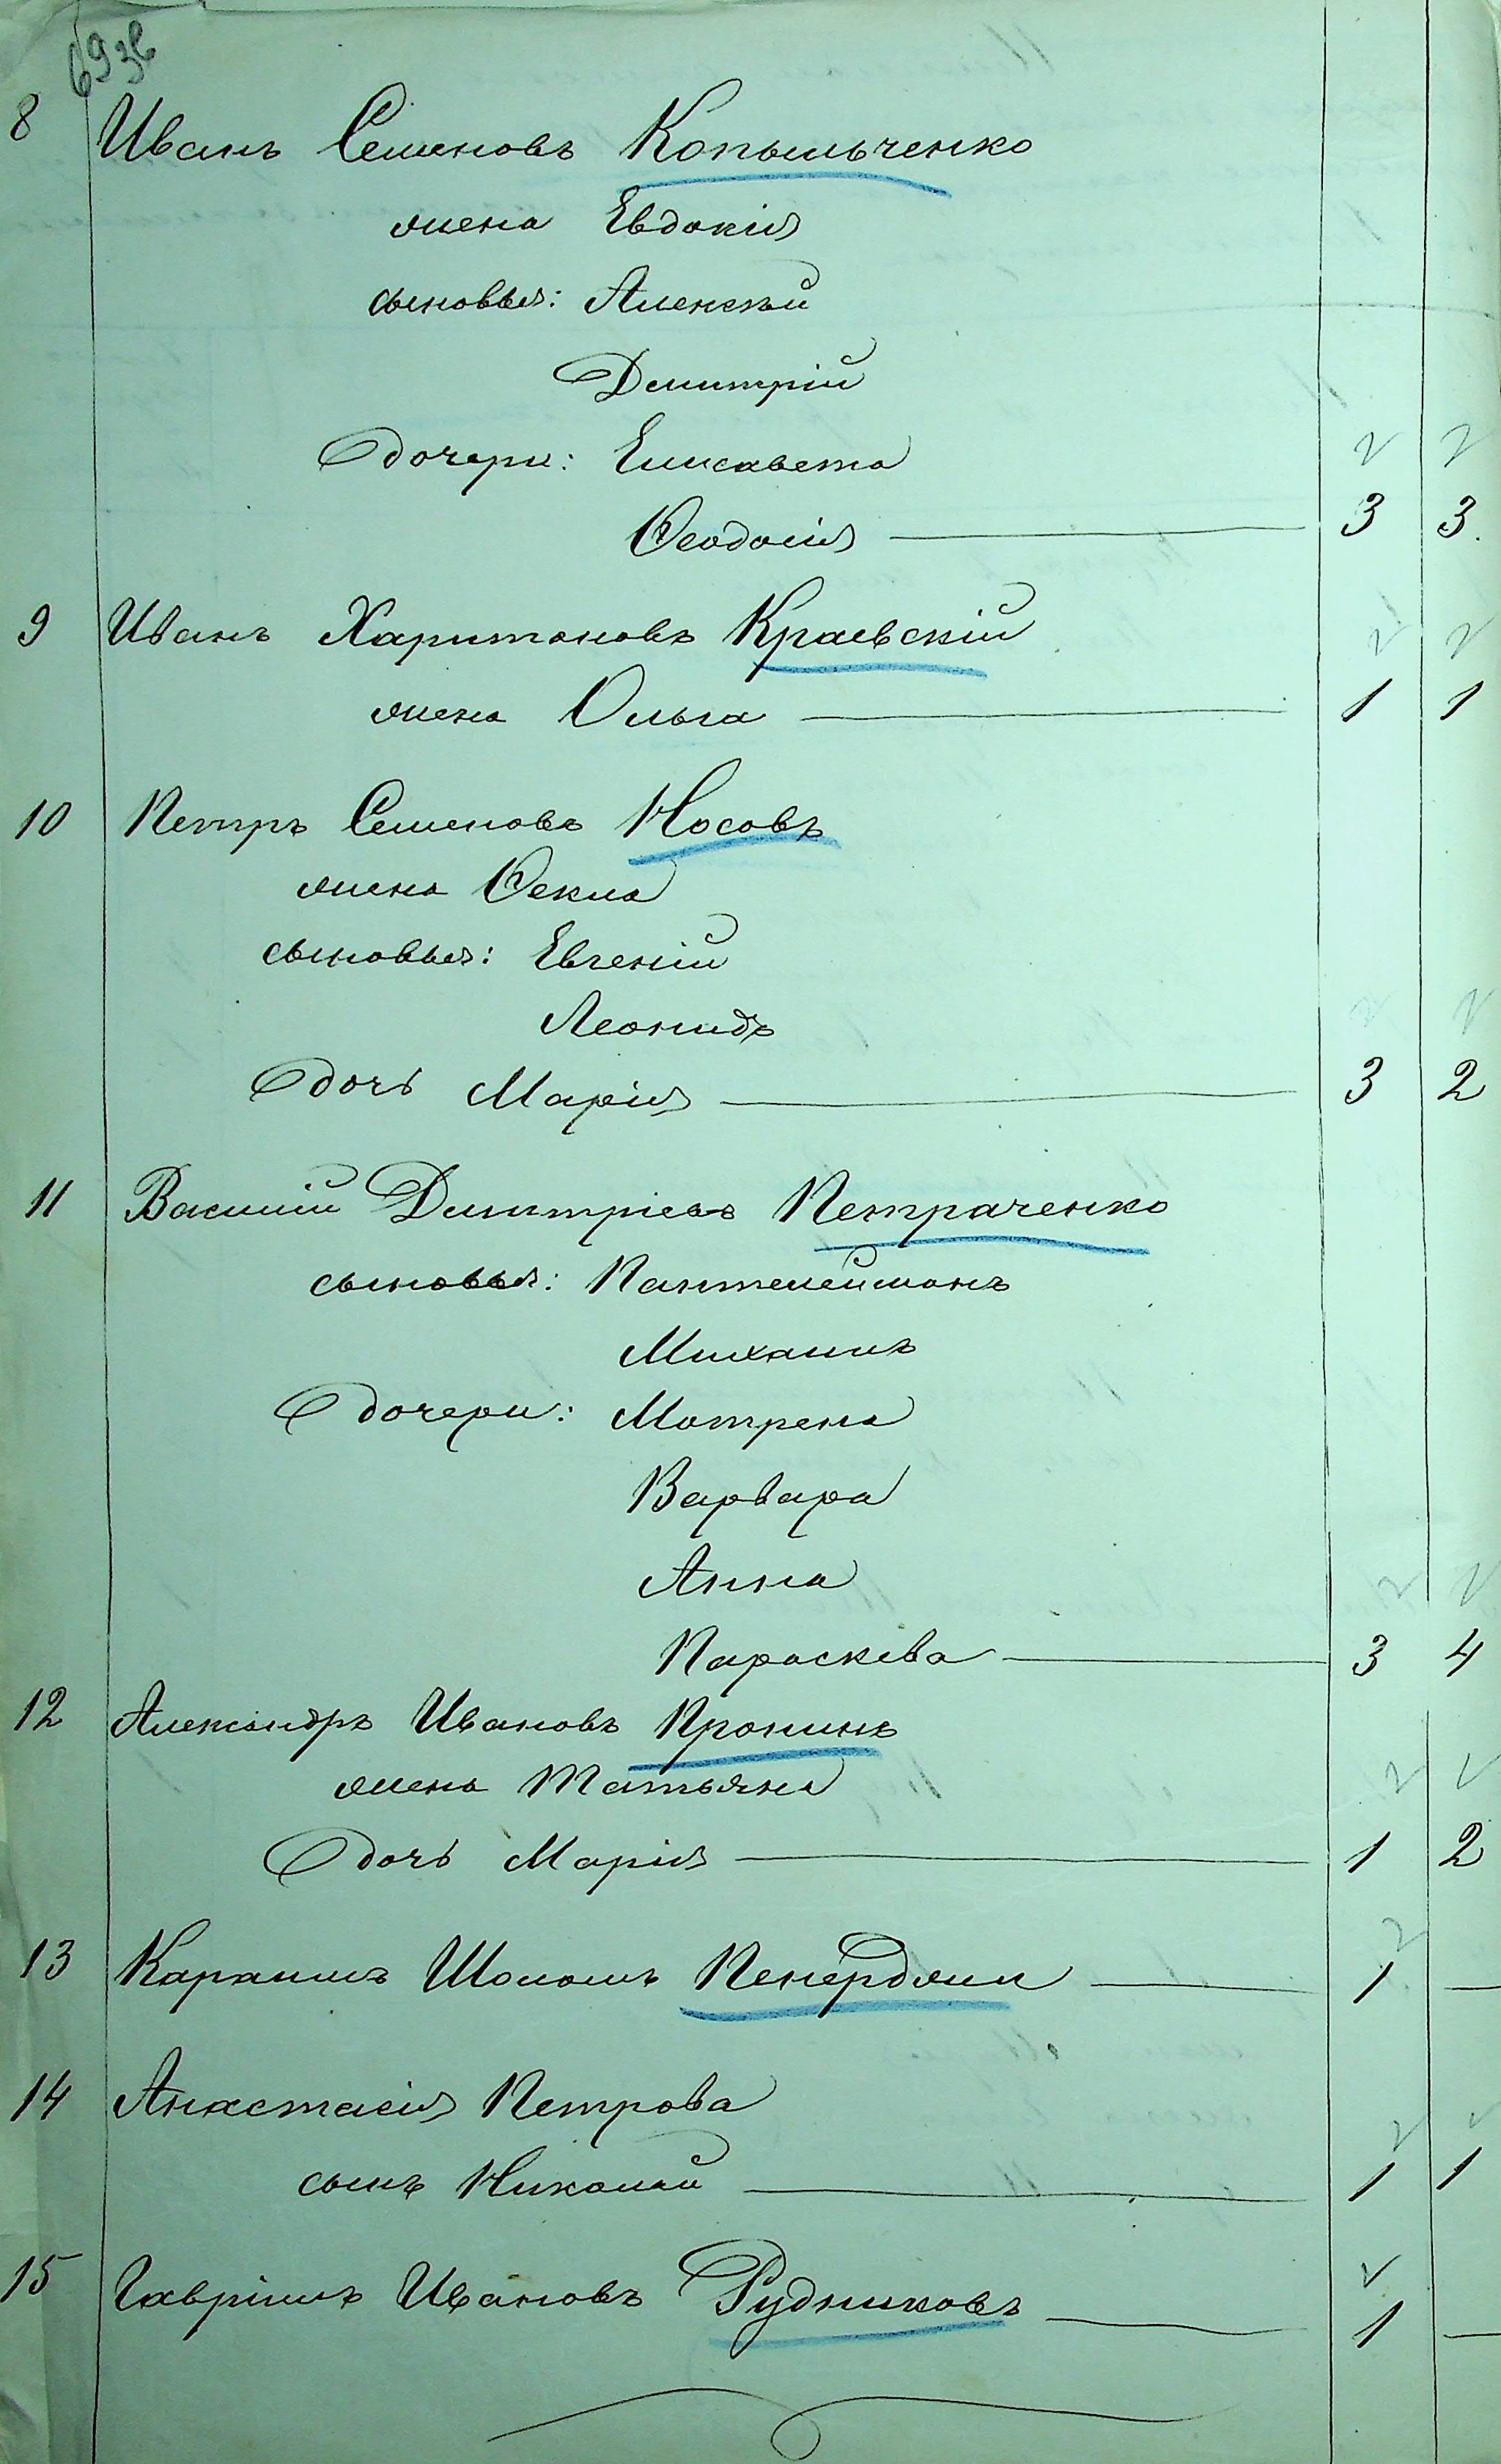 69 об
8 Иванъ Семеновъ Копыльченко
жена Евдокія
сыновья: Алексѣй
Димитрій
дочери: Елисавета
Ѳеодосія — 3 3.
9 Иванъ Харитоновъ Краевскій
жена Ольга — 1 1
10 Петръ Семеновъ Носовъ
жена Ѳекла
сыновья: Евгеній
Леонидъ
дочь Марія — 3 2
11 Василій Димитріевъ Петраченко
сыновья: Пантелеймонъ
Михаилъ
дочери: Мотрена
Варвара
Анна
Параскева — 3 4
12 Александръ Ивановъ Пронинъ
жена Татьяна
дочь Марія — 1 2
13 — 1 —
14 Анастасія Петрова
сынъ Николай — 1 1
15 Гавріилъ Ивановъ Рудниковъ — 1 —